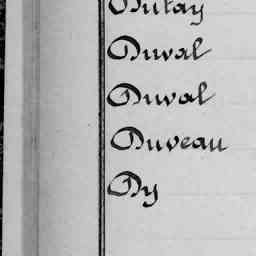 Dutay
Duval
Duval
Duveau
Dy